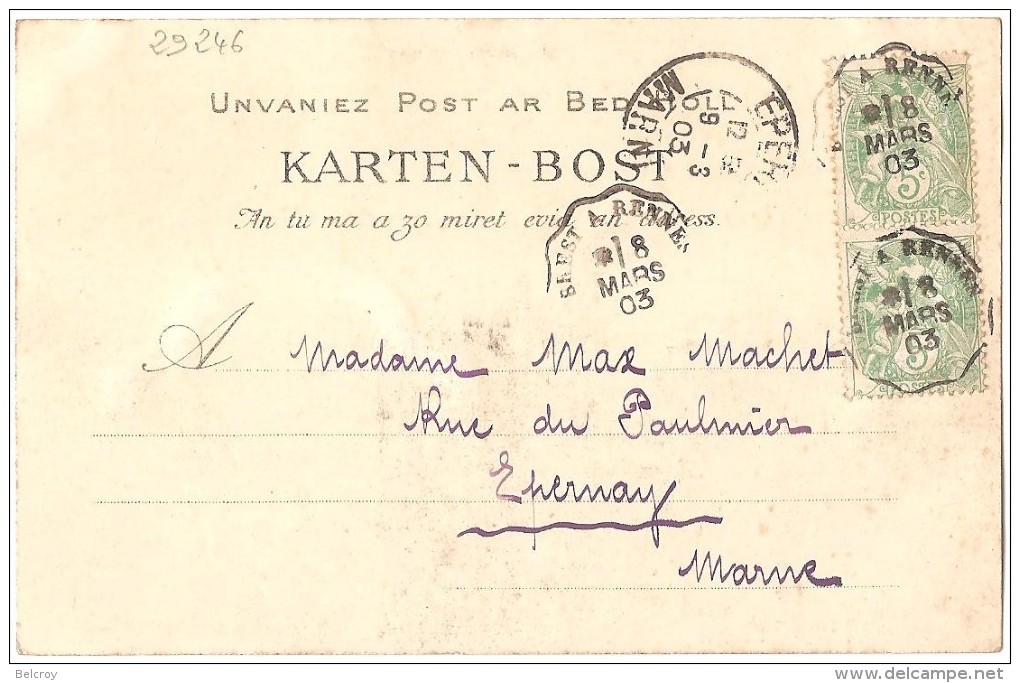 29246
UNVANIEZ POST AR BED HOLL
KARTEN-BOST
An tu ma a zo miret evid an adress.
EPERNAY
MARNE
12 
9 -3
03
BREST A RENNES
8
MARS
03
BREST A RENNES
8
MARS
03
5c
POSTES
BREST A RENNES
8
MARS
03
5c
POSTES
A Madame Max Machet
Rue du Paulmier
Epernay
Marne
Belcroy
www.delcampe.net